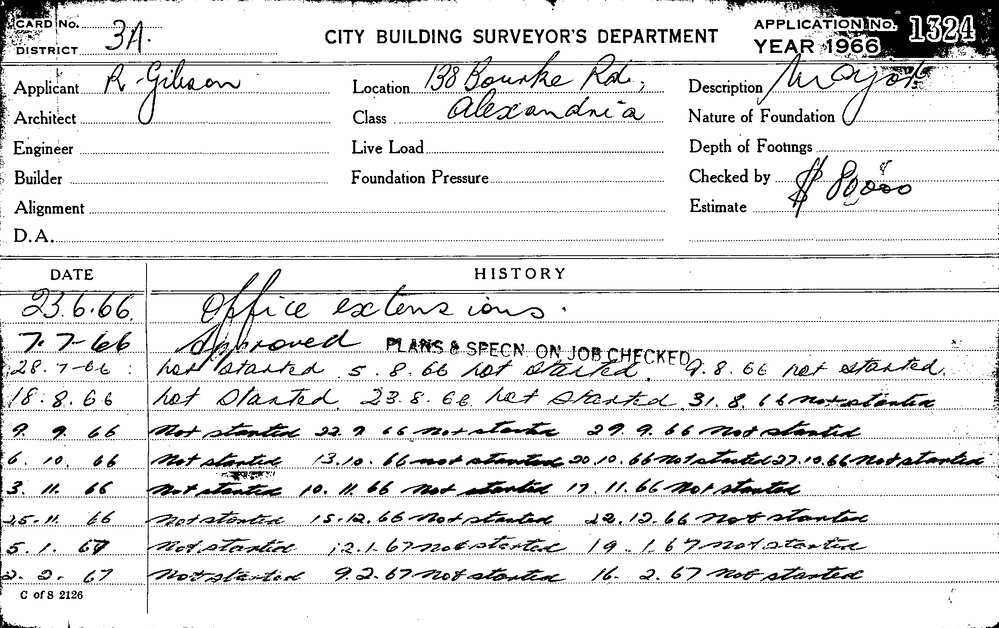 CARD No. APPLICATION No. 1324
DISTRICT 3A. CITY BUILDING SURVEYOR'S DEPARTMENT YEAR 1966
Applicant R Gibson Location 138 Bourke Rd., Description Major
Architect Class Alexandria Nature of Foundation
Engineer Live Load Depth of Footings
Builder Foundation Pressure Checked by
Alignment Estimate $ 80,000
D.A.
DATE HISTORY
23.6.66. Office extensions.
7.7-66 Approved PLANS & SPECN. ON JOB CHECKED
28.7-66: not started 5.8.66 not started. 9.8.66 not started.
18.8.66 not started. 23.8.66 not started. 31.8.66 not started
9. 9. 66 Not started 22.9 66 Not started 29.9.66 Not started
6. 10. 66 Not started 13.10.66 not started 20.10.66 Not started 27.10.66 Not started
3. 11. 66 Not started 10.11.66 Not started 17.11.66 Not started
25.11. 66 Not started 15.12.66 Not started 22.12.66 Not started
5.1. 67 Not started 12.1.67 Not started 19.1.67 Not started
2. 2. 67 Not started 9.2.67 Not started 16. 2.67 Not started
C of S 2126